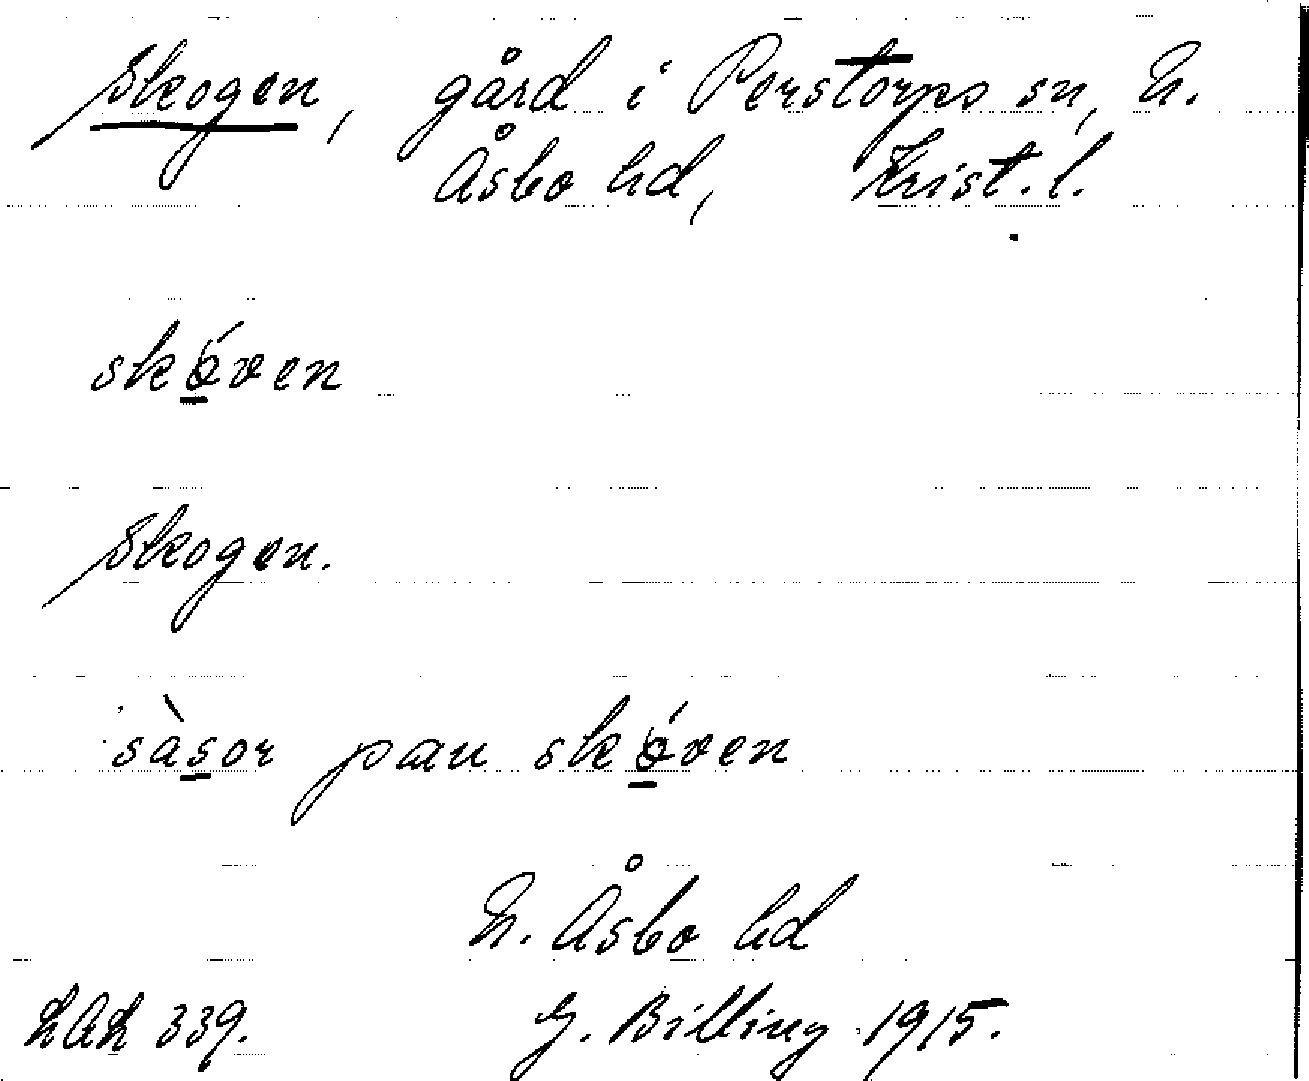 Skogen, gård i Perstorps sn, N.
Åsbo hd, Krist. l.
skóven
Skogen.
sàsor pau skóven
N. Åsbo hd
LAL 339. G. Billing 1915.